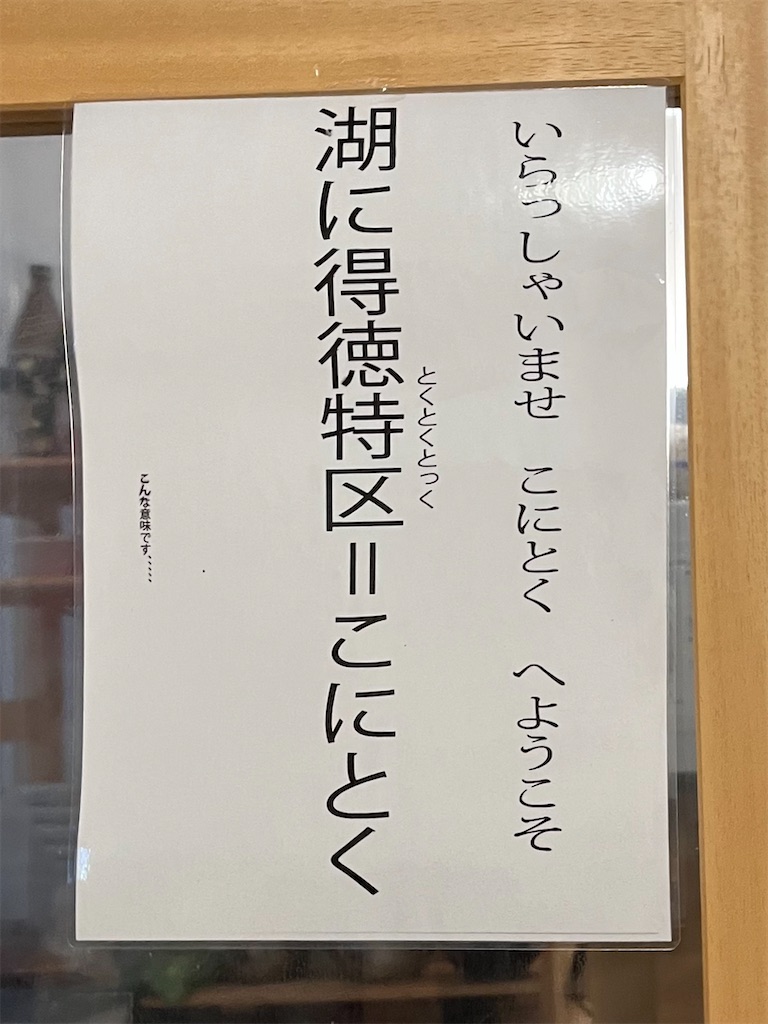 いらっしゃいませ　こにとく　へようこそ
湖に得徳特区＝こにとく
とくとくとっく
こんな意味です、、、、、